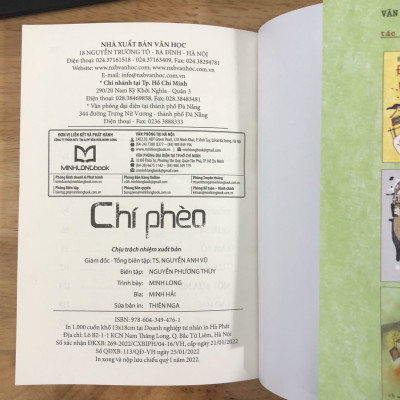 NHÀ XUẤT BẢN VĂN HỌC
18 NGUYỄN TRƯỜNG TỘ - BA ĐÌNH - HÀ NỘI
Điện thoại: 024.37161518 - 024.37163409, Fax: 024.38294781
Website: www.nxbvanhoc.com; www.nxbvanhoc.vn
E-mail: info@nxbvanhoc.vn
* Chi nhánh tại Tp. Hồ Chí Minh
290/20 Nam Kỳ Khởi Nghĩa - Quận 3
Điện thoại: 028.38469858, Fax: 028.38483481
* Văn phòng đại diện tại thành phố Đà Nẵng
344 đường Trưng Nữ Vương - thành phố Đà Nẵng
Điện thoại - Fax: 0236 3888333
ĐƠN VỊ LIÊN KẾT VÀ PHÁT HÀNH
MINHLONGbook
VĂN PHÒNG TẠI HÀ NỘI:
VĂN PHÒNG ĐẠI DIỆN TẠI TP HỒ CHÍ MINH
Chí phèo
Chịu trách nhiệm xuất bản
Giám đốc - Tổng biên tập: TS. NGUYỄN ANH VŨ
Biên tập: NGUYỄN PHƯƠNG THÙY
Trình bày: MINH LONG
Bìa: MINH HẢI
Sửa bản in: THIÊN NGA
ISBN: 978-604-349-476-1
In 1.000 cuốn khổ 13x18cm tại Doanh nghiệp tư nhân in Hà Phát
Địa chỉ: Lô B2-1-1 KCN Nam Thăng Long, Q. Bắc Từ Liêm, Hà Nội
Số xác nhận ĐKXB: 269-2022/CXBIPH/04-16/VH, cấp ngày 21/01/2022
Số QĐXB: 113/QĐ-VH ngày 25/01/2022
In xong và nộp lưu chiểu quý I năm 2022.
VĂN
tác